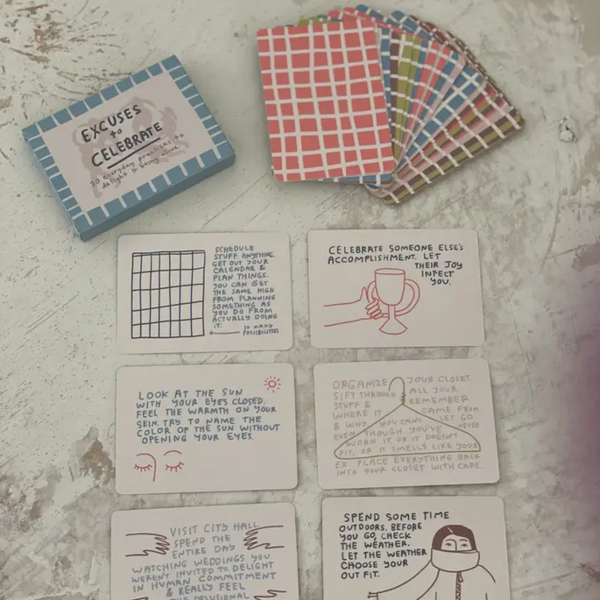 EXCUSES
to
CELEBRATE
30 everyday practices to
delight in being alive
SCHEDULE
STUFF. ANYTHING.
GET OUT YOUR
CALENDAR &
PLAN THINGS.
YOU CAN GET
THE SAME HIGH
FROM PLANNING
SOMETHING AS
YOU DO FROM
ACTUALLY DOING
IT.
SO MANY
POSSIBILITIES
CELEBRATE SOMEONE ELSE'S
ACCOMPLISHMENT. LET
THEIR JOY
INFECT
YOU.
LOOK AT THE SUN
WITH YOUR EYES CLOSED.
FEEL THE WARMTH ON YOUR
SKIN. TRY TO NAME THE
COLOR OF THE SUN WITHOUT
OPENING YOUR EYES.
ORGANIZE YOUR CLOSET.
SIFT THROUGH ALL YOUR
STUFF & REMEMBER
WHERE IT CAME FROM
& WHY YOU CAN'T LET GO
EVEN THOUGH YOU'VE NEVER
WORN IT OR IT DOESN'T
FIT, OR IT SMELLS LIKE YOUR
EX. PLACE EVERYTHING BACK
INTO YOUR CLOSET WITH CARE.
VISIT CITY HALL
SPEND THE
ENTIRE DAY
WATCHING WEDDINGS YOU
WEREN'T INVITED TO. DELIGHT
IN HUMAN COMMITMENT
& REALLY FEEL
DELUSIONAL
SPEND SOME TIME
OUTDOORS. BEFORE
YOU GO, CHECK
THE WEATHER.
LET THE WEATHER
CHOOSE YOUR
OUTFIT.